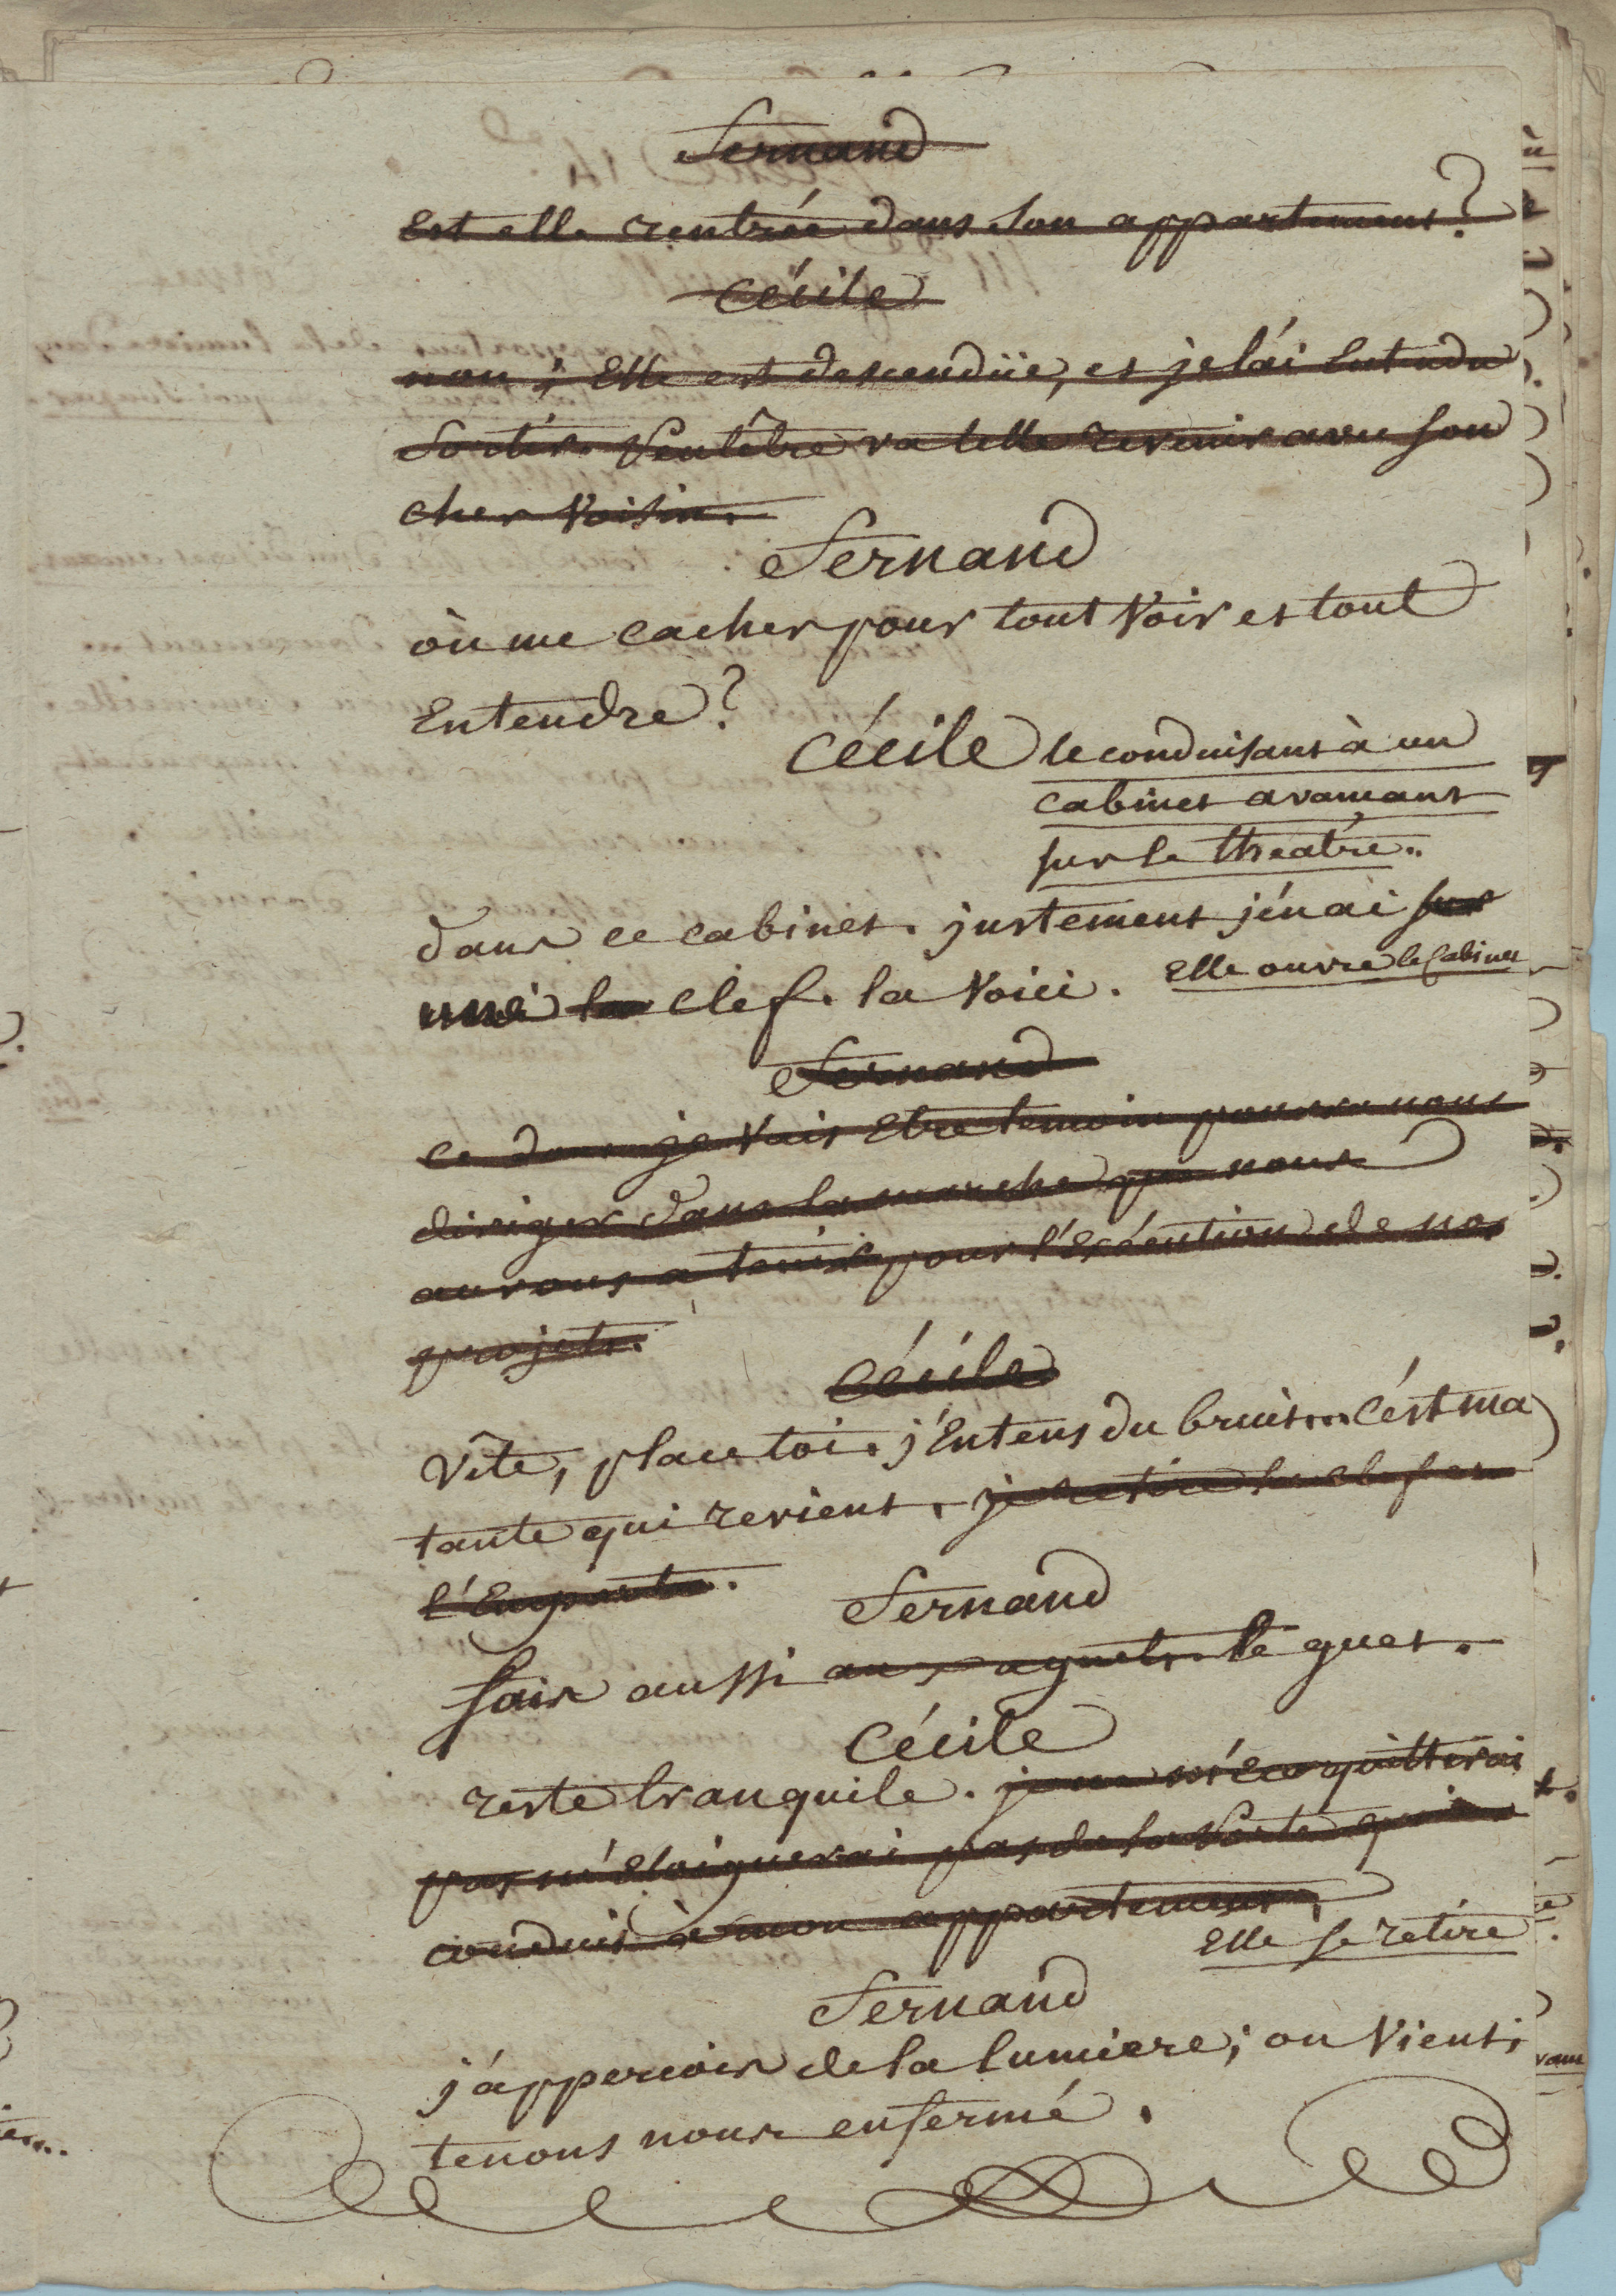 Fernand
Est elle rentrée dans Son appartement?
Cécile
non; Elle est descendüe, et je l'ai Entendu
Sortir. Peutêtre va telle revenir avec son
cher Voisin.
Fernand
où me cacher pour tout Voir et tout
Entendre?
Cécile le conduisant à un
cabinet avancant
sur le theatre..
dans ce cabinet. justement j'én ai
une la clef. la Voici. Elle ouvre le Cabinet
Fernand
ce dont je Vais Etre temoin pourra nous
diriger dans la marche que nous
aurons a tenir pour l'Exécution de nos
projets.
Cécile
Vîte, place toi. j'Entens du bruit... C'ést ma
tante qui revient. je retire la clef et
l'Emporte.
Fernand
fais aussi aux aguets. le guet.
Cécile
reste tranquile. je ne m'en quitterai
pas m'éloignerai pas de la Porte qui
conduit à mon appartement.
Elle se retire
Fernand
j'appercois de la lumiere; on Vient;
tenons nous enfermé.